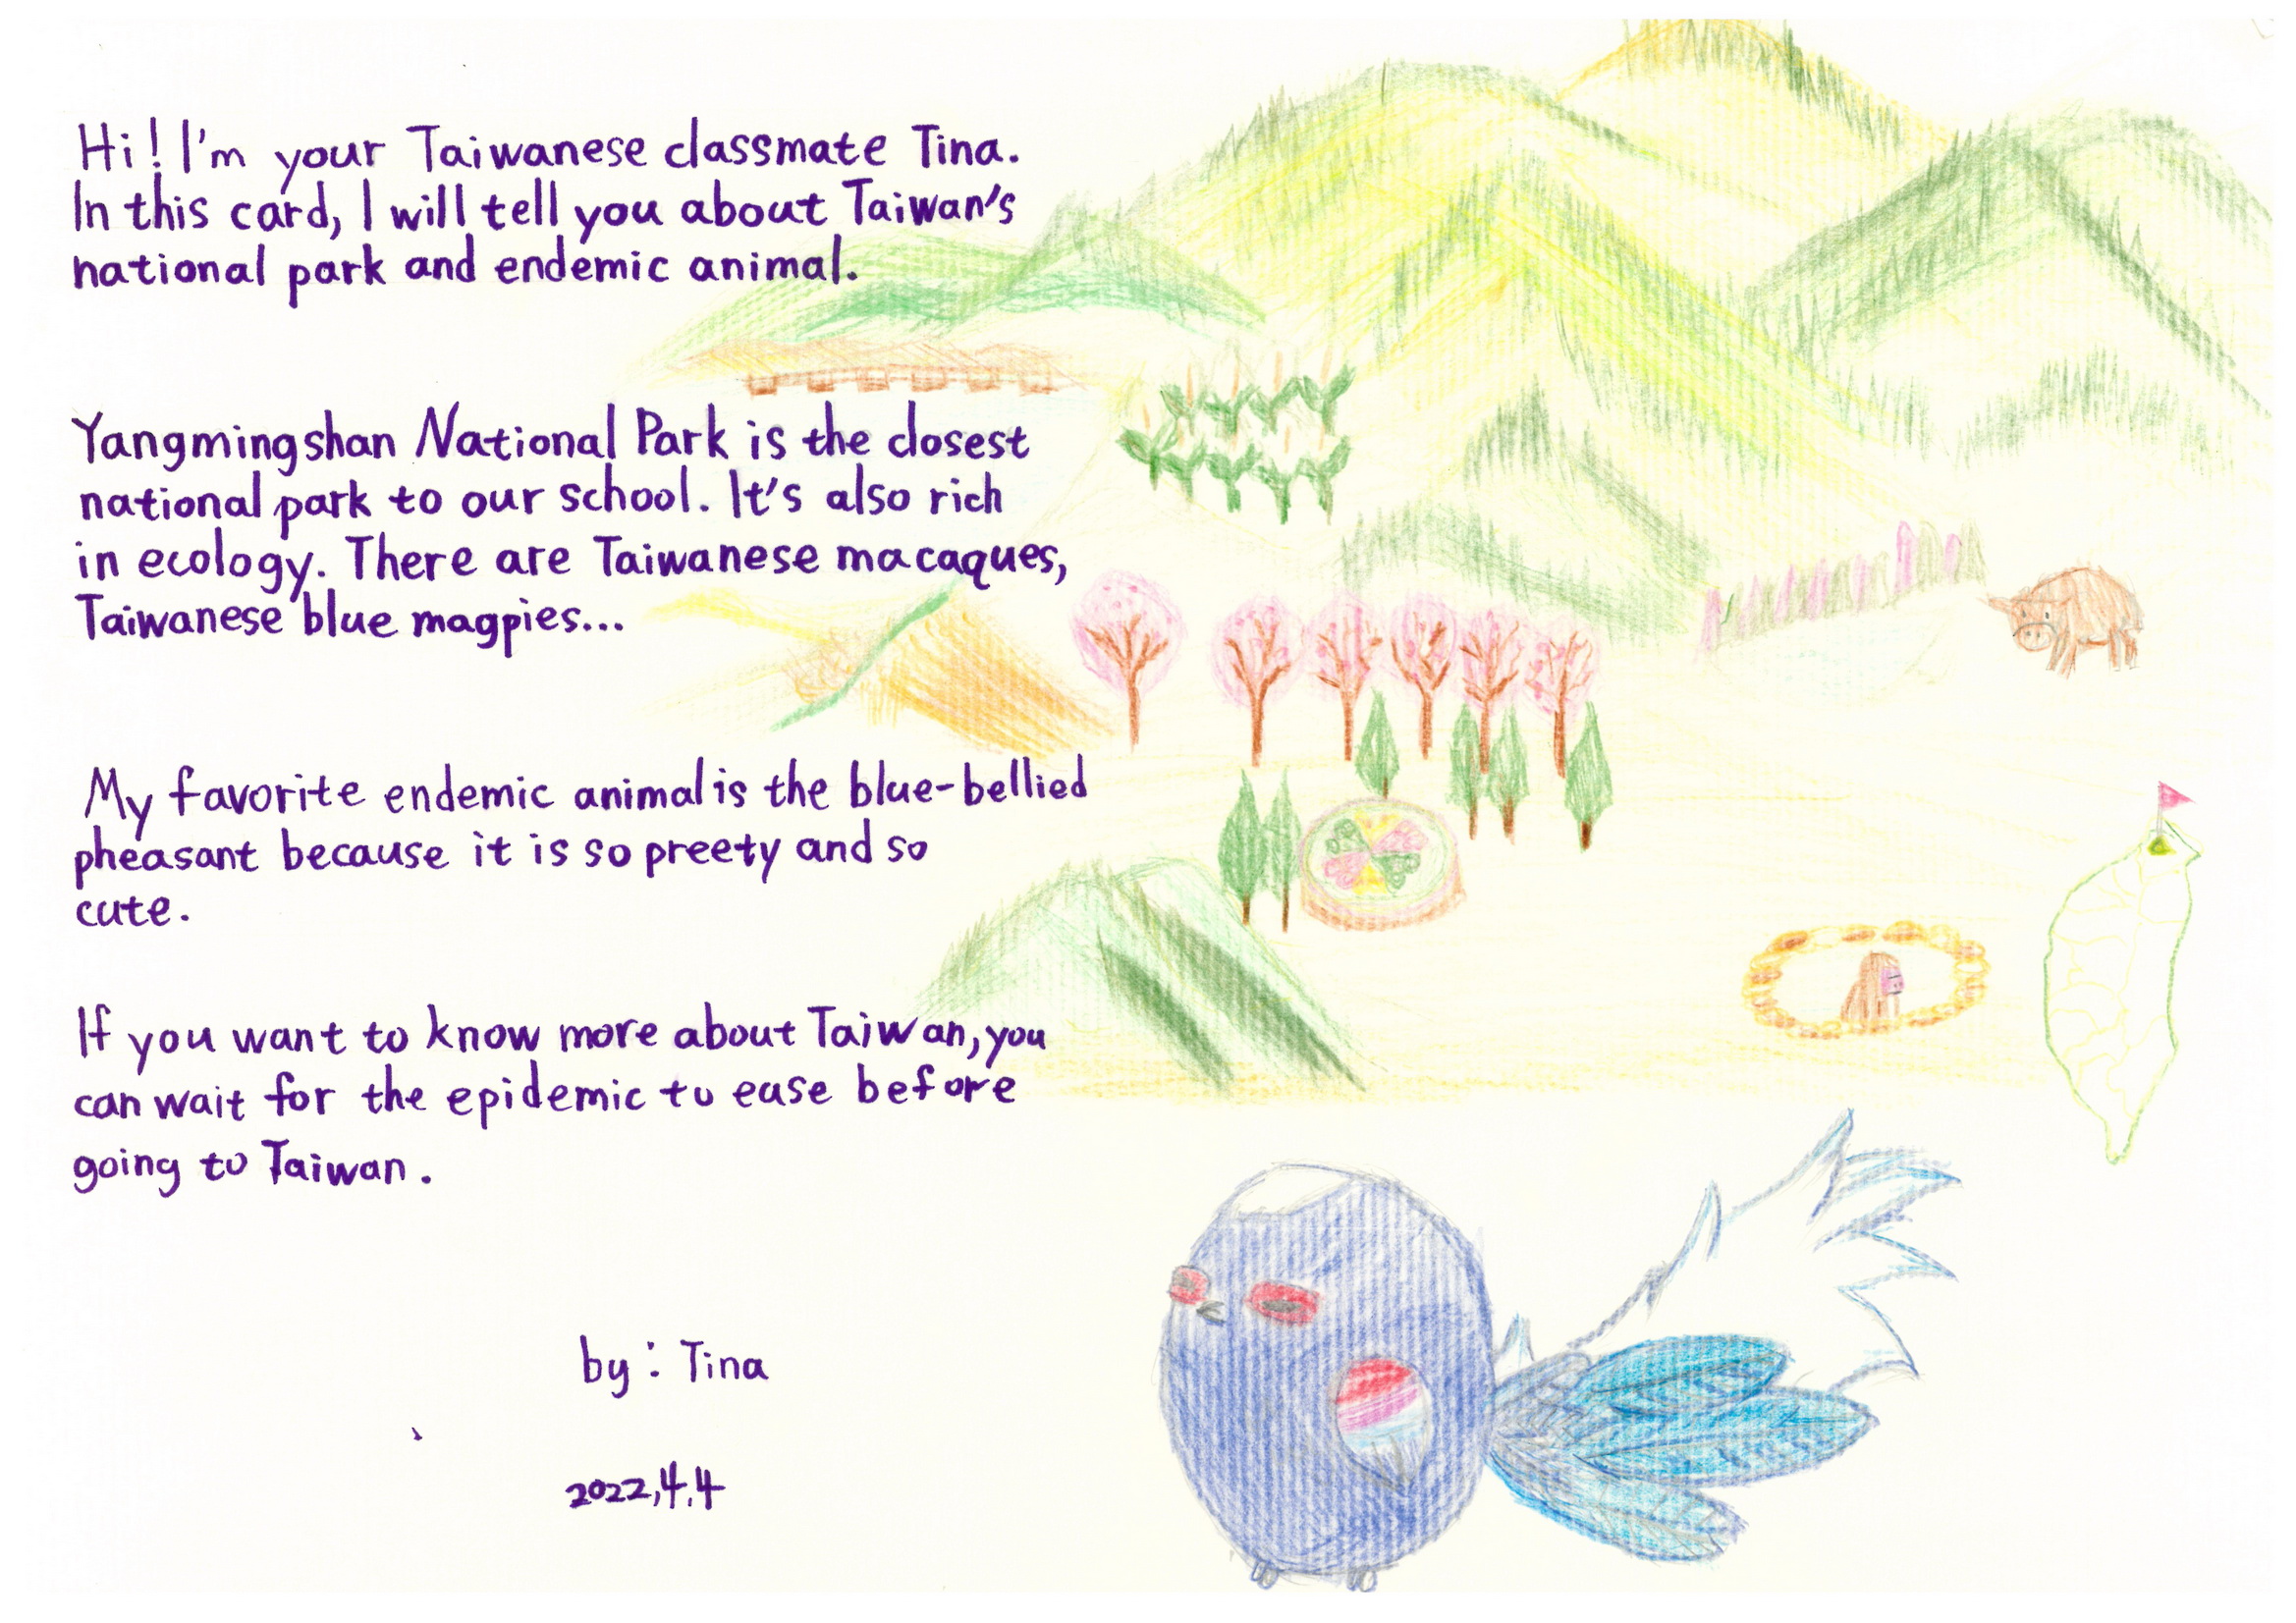 Hi! I'm your Taiwanese classmate Tina.
In this card, I will tell you about Taiwan's
national park and endemic animal.
Yangmingshan National Park is the closest
national park to our school. It's also rich
in ecology. There are Taiwanese macaques,
Taiwanese blue magpies...
My favorite endemic animal is the blue-bellied
pheasant because it is so preety and so
cute.
If you want to know more about Taiwan, you
can wait for the epidemic to ease before
going to Taiwan.
by: Tina
2022,4.4